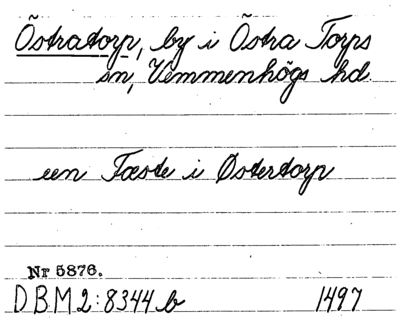 Östratorp, by i Östra Torps
sn, Vemmenhögs hd.
een Fæste i Østertorp
Nr 5876.
DBM 2:8344 b 1497